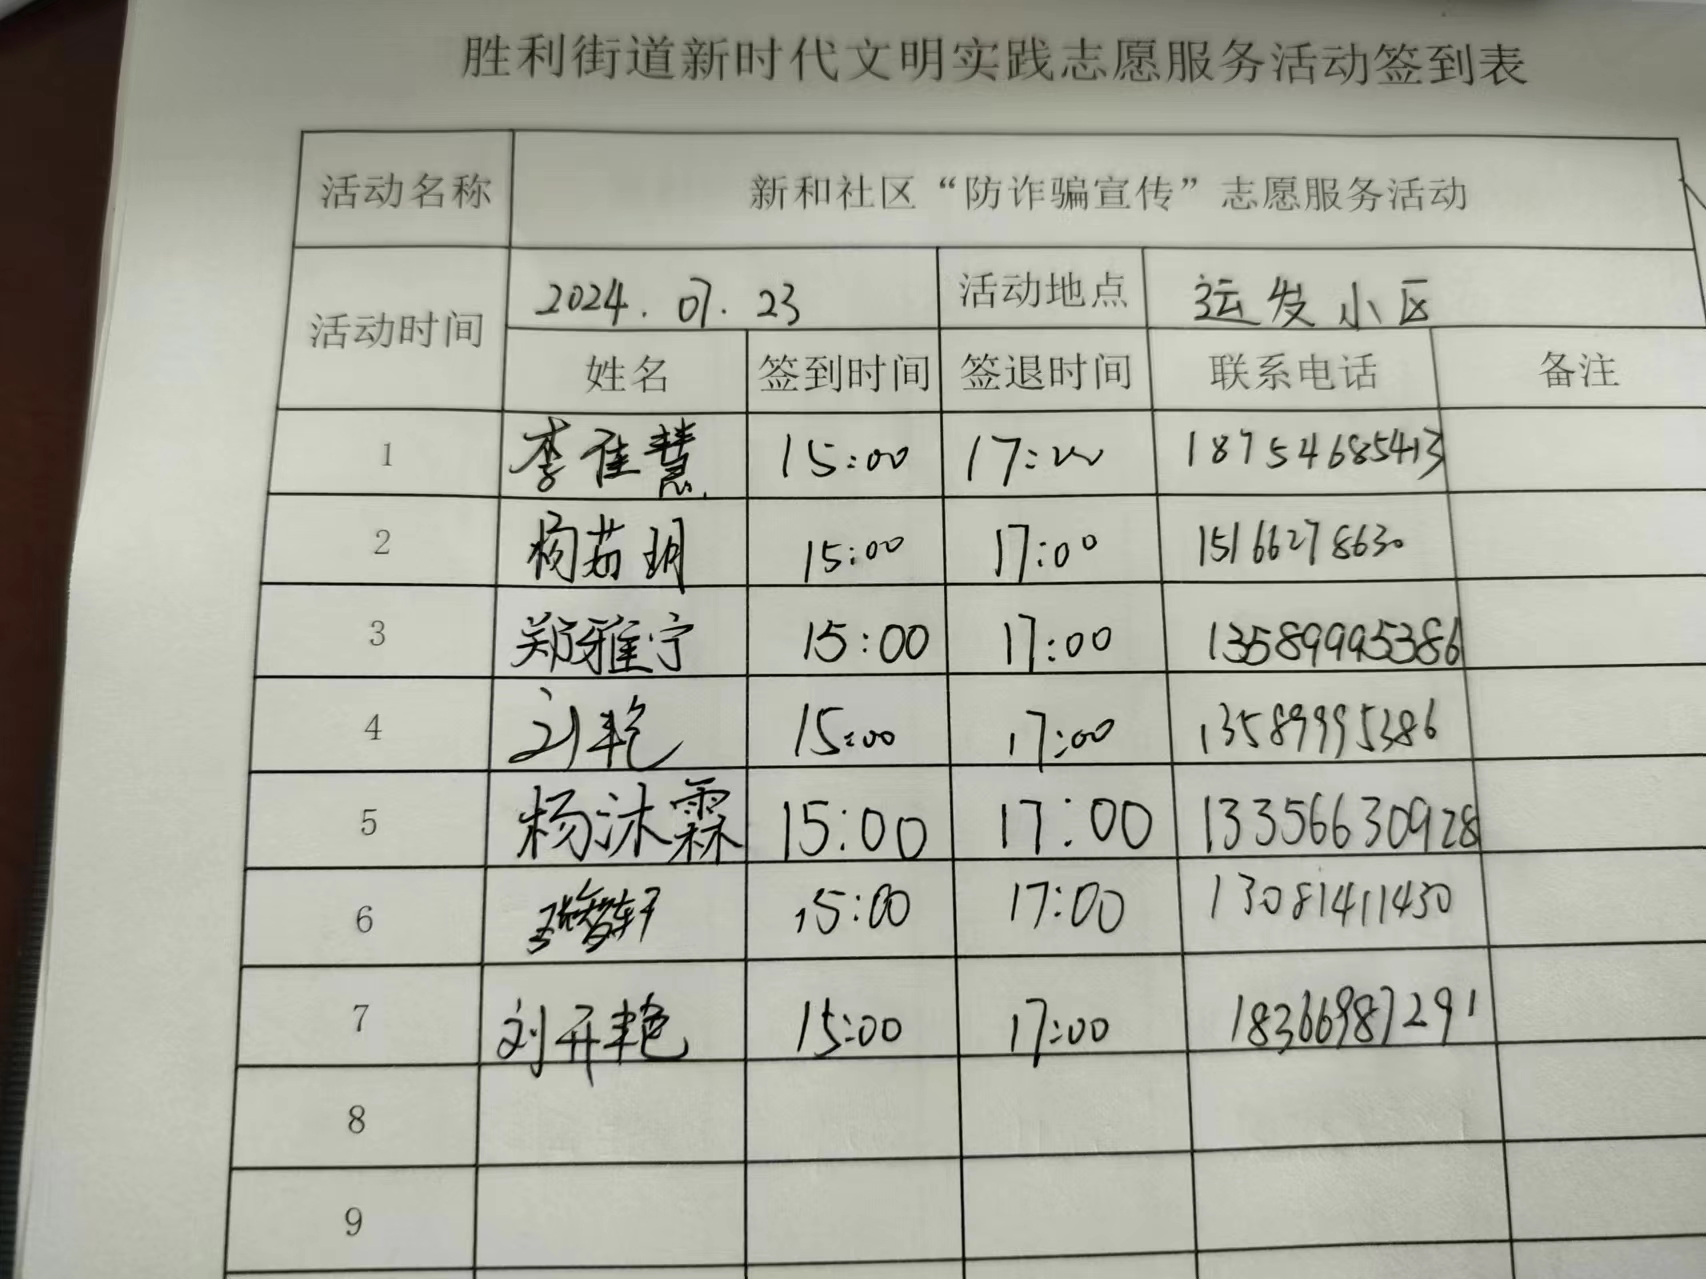 胜利街道新时代文明实践志愿服务活动签到表
活动名称 新和社区“防诈骗宣传”志愿服务活动
活动时间 2024.07.23 活动地点 运发小区
姓名 签到时间 签退时间 联系电话 备注
1 李佳慧 15:00 17:00 18754685413
2 杨茹玥 15:00 17:00 15166278630
3 郑雅宁 15:00 17:00 13589995386
4 刘艳 15:00 17:00 13589995386
5 杨沐霖 15:00 17:00 13356630928
6 15:00 17:00 13081411430
7 刘开艳 15:00 17:00 18366987291
8
9